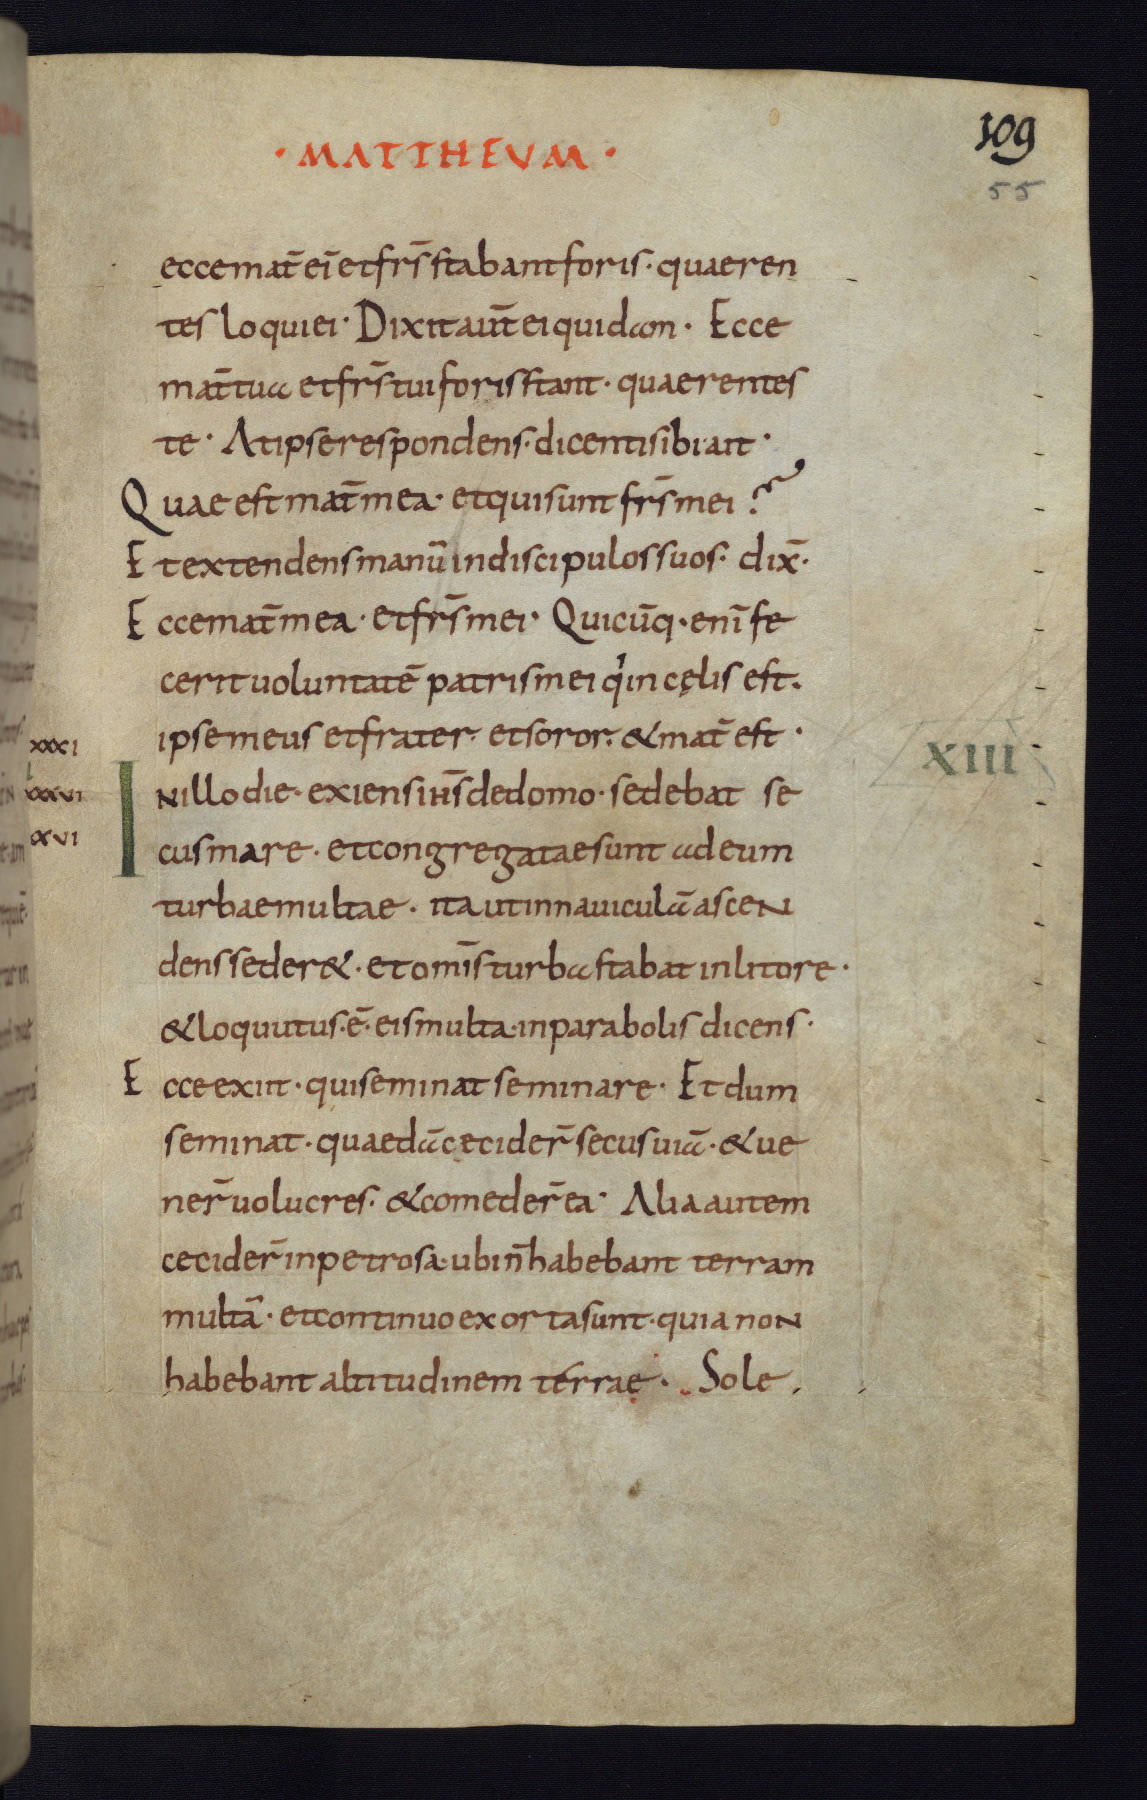 · MATTHEUM ·
109
55
ecce mat̄ ei̅ et fr̄s stabant foris · quaeren
tes loqui ei · Dixit aut̄ ei quidam · Ecce
mat̄ tua et fr̄s tui foris stant · quaerentes
te · At ipse respondens · dicenti sibi ait ·
Quae est mat̄ mea · et qui sunt fr̄s mei ?
Et extendens manū in discipulos suos · dix̄ ·
Ecce mat̄ mea · et fr̄s mei · Quicūq · enī fe
cerit voluntatē patris mei q̍ in cęlis est ·
ipse meus et frater · et soror · & mat̄ est ·
XXXI
XXXVI
XVI
XIII
IN illo die · exiens ih̄s de domo · sedebat se
cus mare · et congregatae sunt ad eum
turbae multae · ita ut in naviculā ascen
dens seder& · et om̄is turba stabat in litore ·
& loquutus · ē · eis multa · in parabolis dicens ·
Ecce exiit · qui seminat seminare · Et dum
seminat · quaedā cecider̄ secus viā · & ve
ner̄ volucres · & comeder̄ ea · Alia autem
cecider̄ in petrosa · ubi n̄ habebant terram
multā · et continuo exorta sunt · quia non
habebant altitudinem terrae · Sole